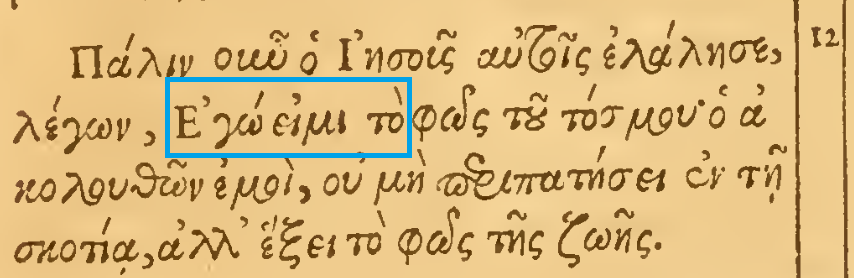 Πάλιν οὖν ὁ Ἰησοῦς αὐτοῖς ἐλάλησε, 12
λέγων, Ἐγώ εἰμι τὸ φῶς τοῦ κόσμου· ὁ ἀ
κολουθῶν ἐμοὶ, οὐ μὴ περιπατήσει ἐν τῇ
σκοτίᾳ, ἀλλ’ ἕξει τὸ φῶς τῆς ζωῆς.